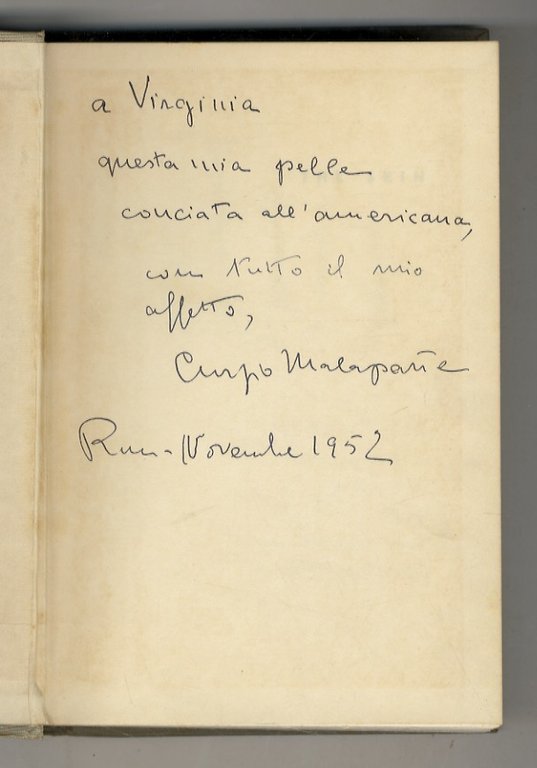 a Virginia
questa mia pelle
conciata all'americana,
con tutto il mio
affetto,
Curzio Malaparte
Roma - Novembre 1952